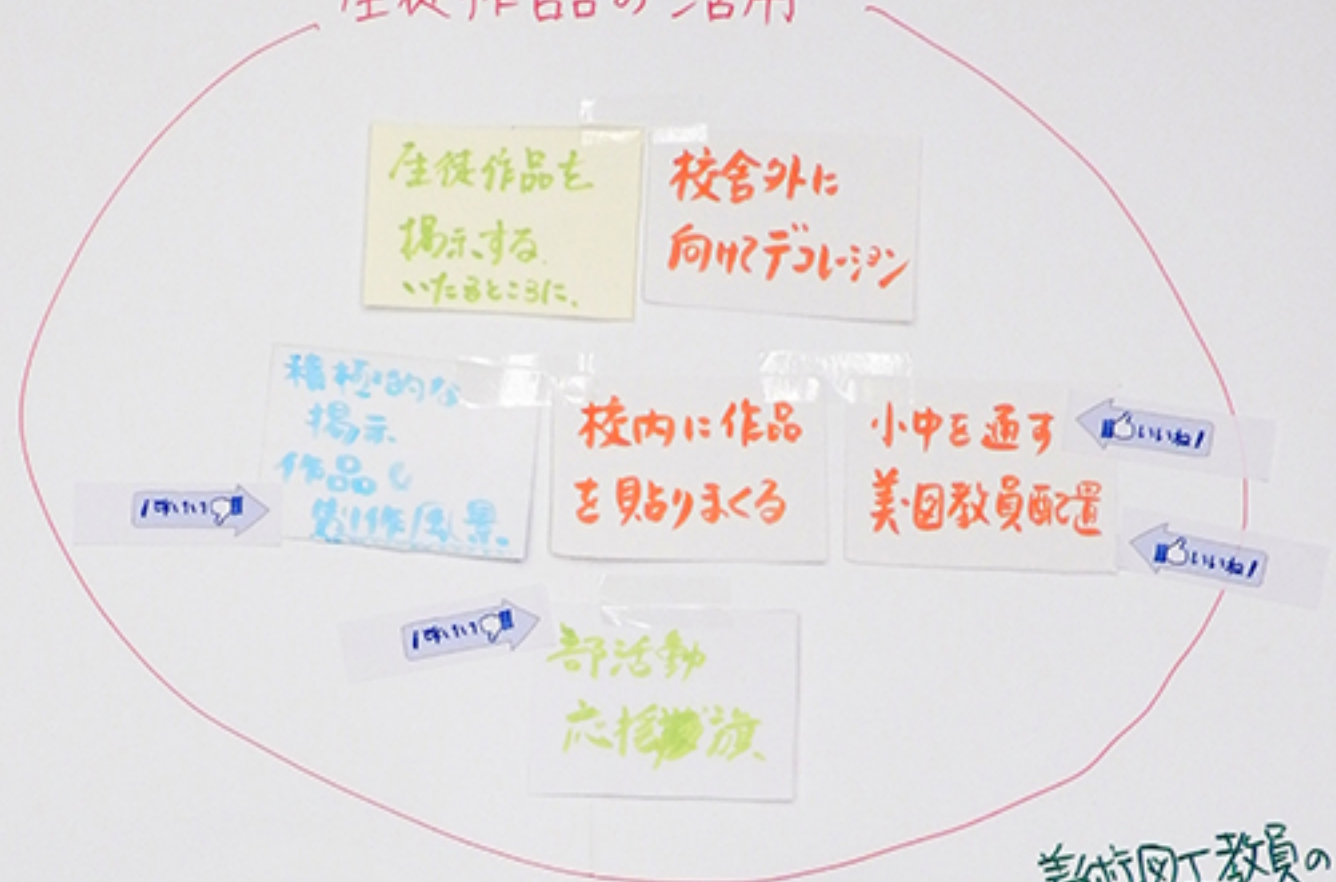 生徒作品の活用
生徒作品を
掲示する
いたるところに、
校舎外に
向けてデコレーション
積極的な
掲示
作品も
製作風景
校内に作品
を貼りまくる
小中を通す
美・図教員配置
いいね!
いいね!
いいね!
いいね!
部活動
応援旗
美術図工教員の